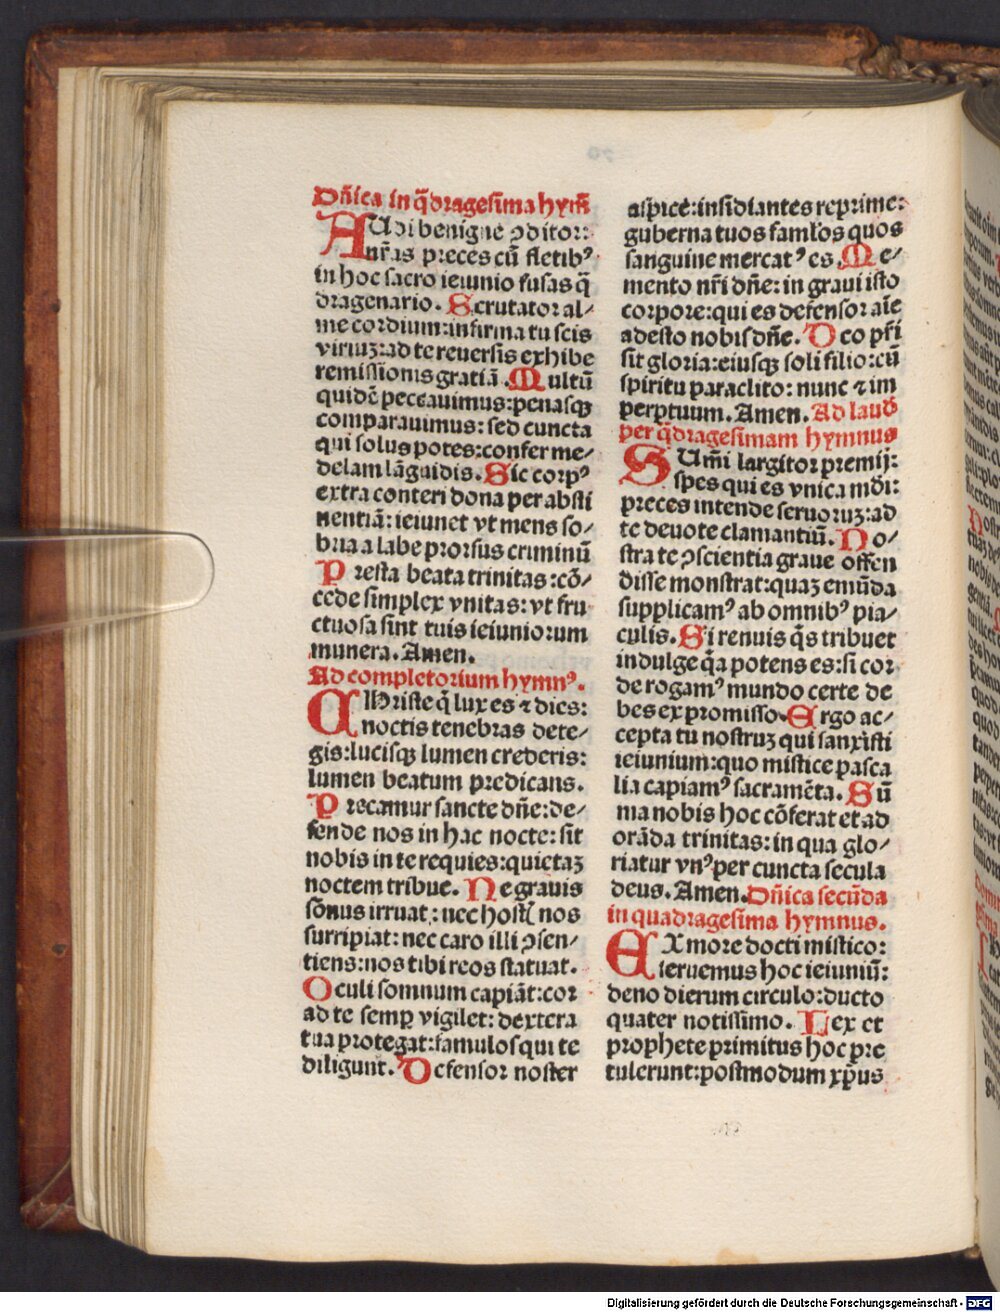 Dñica in q̃dragesima hym̃
AUdi benigne ꝯditor:
nr̃as preces cũ fletibꝰ
in hoc sacro ieiunio fusas q̃
dragenario. Scrutator al⸗
me cordium: infirma tu scis
viriuꝫ: ad te reuersis exhibe
remissionis gratiã. Multũ
quidẽ peccauimus: penasqꝫ
comparauimus: sed cuncta
qui solus potes: confer me⸗
delam lãguidis. Sic corpꝰ
extra conteri dona per absti
nentiã: ieiunet vt mens so⸗
bria a labe prorsus criminũ
Presta beata trinitas: cõ⸗
cede simplex vnitas: vt fru⸗
ctuosa sint tuis ieiuniorum
munera. Amen.
Ad completorium hymnꝰ.
CHriste q̃ lux es ⁊ dies:
noctis tenebras dete⸗
gis: lucisqꝫ lumen crederis:
lumen beatum predicans.
Precamur sancte dñe: de⸗
fende nos in hac nocte: sit
nobis in te requies: quietaꝫ
noctem tribue. Ne grauis
sõnus irruat: nec hostꝭ nos
surripiat: nec caro illi ꝯsen⸗
tiens: nos tibi reos statuat.
Oculi somnum capiãt: cor
ad te semꝑ vigilet: dextera
tua protegat: famulos qui te
diligunt. Defensor noster
aspice: insidiantes reprime:
guberna tuos famłos quos
sanguine mercatꝰ es. Me⸗
mento nr̃i dñe: in graui isto
corpore: qui es defensor aĩe
adesto nobis dñe. Deo pr̃i
sit gloria: eiusqꝫ soli filio: cũ
spiritu paraclito: nunc ⁊ im
perpetuum. Amen. Ad laud̃
per q̃dragesimam hymnus
SUm̃i largitor premij:
spes qui es vnica mũdi:
preces intende seruoruꝫ: ad
te deuote clamantiũ. No⸗
stra te ꝯscientia graue offen
disse monstrat: quaꝫ emũda
supplicamꝰ ab omnibꝰ pia⸗
culis. Si renuis q̃s tribuet
indulge q̃a potens es: si cor
de rogamꝰ mundo certe de
bes ex promisso. Ergo ac⸗
cepta tu nostruꝫ qui sanxisti
ieiunium: quo mistice pasca
lia capiamꝰ sacramẽta. Sũ
ma nobis hoc cõferat et ad
orãda trinitas: in qua glo⸗
riatur vnꝰ per cuncta secula
deus. Amen. Dñica secũda
in quadragesima hymnus.
EX more docti mistico:
seruemus hoc ieiuniũ:
deno dierum circulo: ducto
quater notissimo. Lex et
prophete primitus hoc pre
tulerunt: postmodum xp̃us
Digitalisierung gefördert durch die Deutsche Forschungsgemeinschaft - DFG